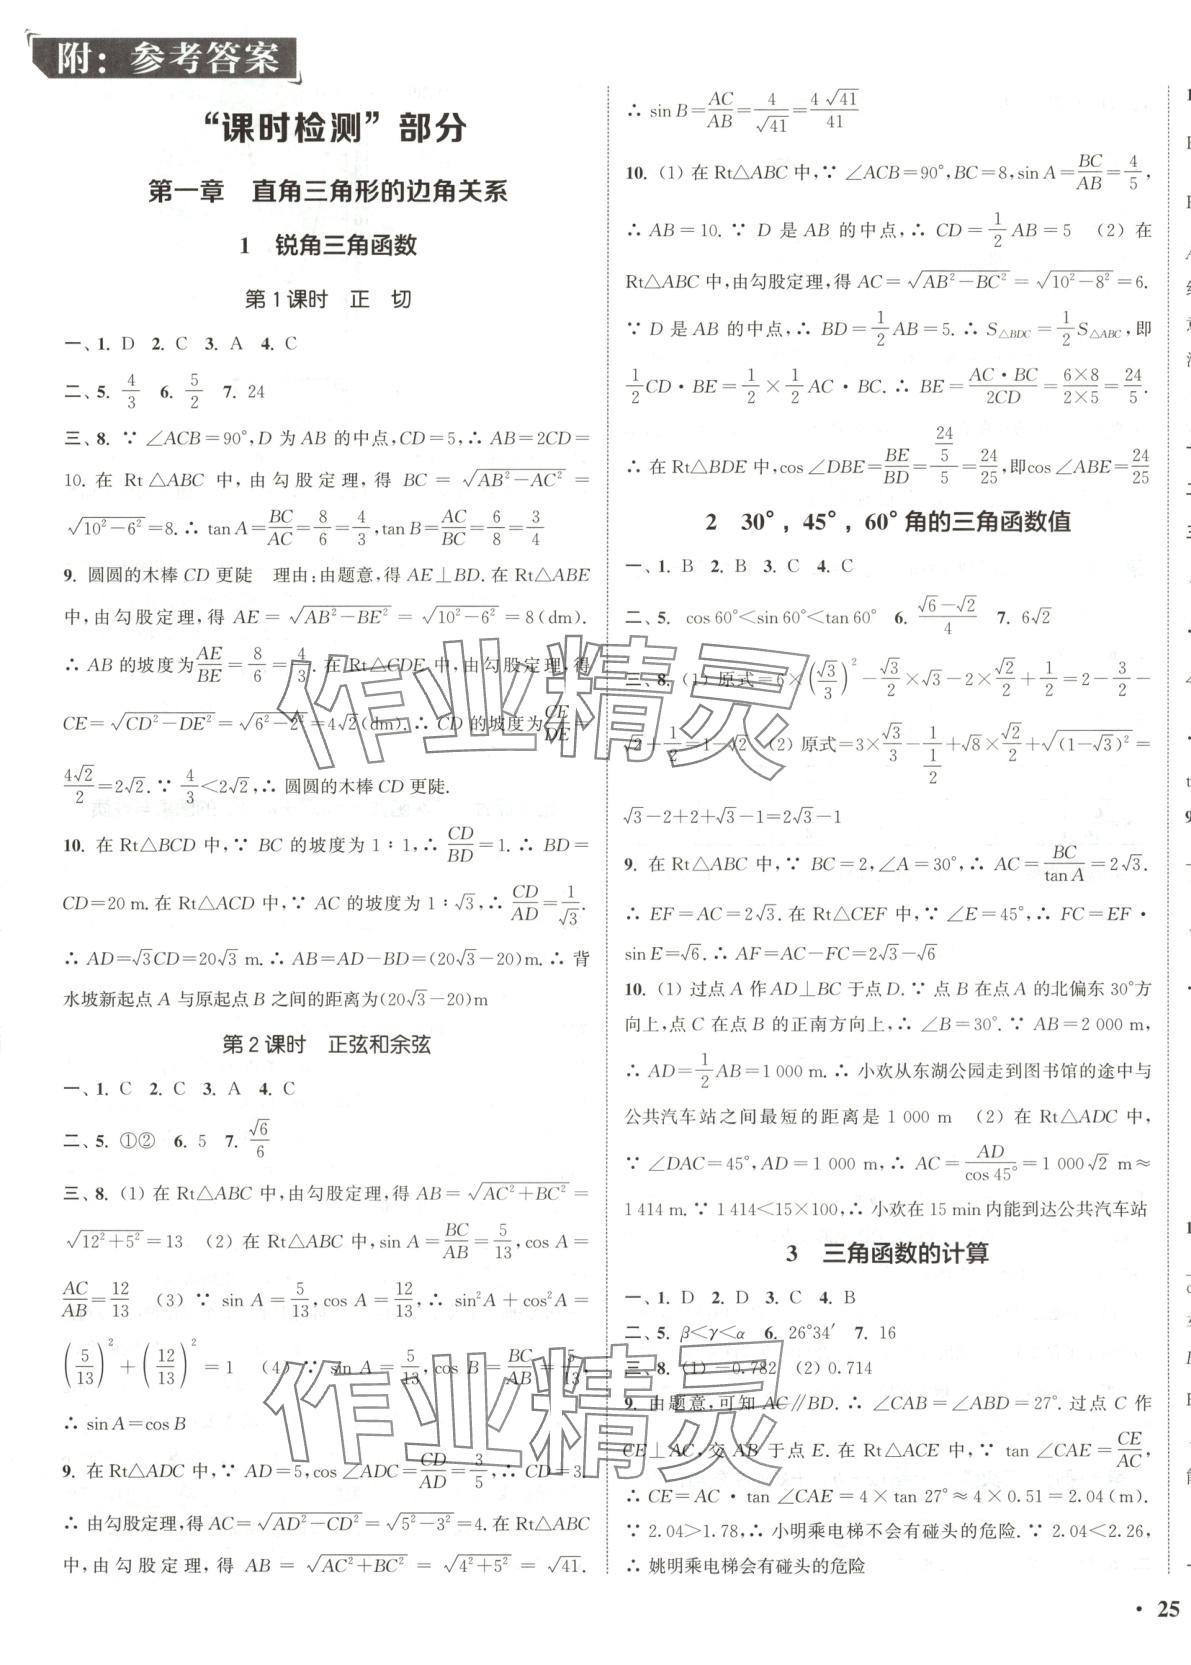 附：参考答案
“课时检测”部分
第一章 直角三角形的边角关系
1 锐角三角函数
第1课时 正 切
一、1. D 2. C 3. A 4. C
二、5. 4/3 6. 5/2 7. 24
三、8. ∵ ∠ACB=90°,D 为 AB 的中点,CD=5,∴ AB=2CD=
10. 在 Rt△ABC 中,由勾股定理,得 BC=√(AB²-AC²)=
√(10²-6²)=8.∴ tan A=BC/AC=8/6=4/3,tan B=AC/BC=6/8=3/4
9. 圆圆的木棒 CD 更陡 理由:由题意,得 AE⊥BD.在 Rt△ABE
中,由勾股定理,得 AE=√(AB²-BE²)=√(10²-6²)=8(dm).
∴ AB 的坡度为AE/BE=8/6=4/3.在 Rt△CDE 中,由勾股定理,得
CE=√(CD²-DE²)=√(6²-2²)=4√2(dm).∴ CD 的坡度为CE/DE=
4√2/2=2√2.∵ 4/3<2√2,∴ 圆圆的木棒 CD 更陡.
10. 在 Rt△BCD 中,∵ BC 的坡度为 1∶1,∴ CD/BD=1.∴ BD=
CD=20 m.在 Rt△ACD 中,∵ AC 的坡度为 1∶√3,∴ CD/AD=1/√3.
∴ AD=√3CD=20√3 m.∴ AB=AD-BD=(20√3-20)m.∴ 背
水坡新起点 A 与原起点 B 之间的距离为(20√3-20)m
第2课时 正弦和余弦
一、1. C 2. C 3. A 4. C
二、5. ①② 6. 5 7. √6/6
三、8. (1) 在 Rt△ABC 中,由勾股定理,得 AB=√(AC²+BC²)=
√(12²+5²)=13 (2) 在 Rt△ABC 中,sin A=BC/AB=5/13,cos A=
AC/AB=12/13 (3) ∵ sin A=5/13,cos A=12/13,∴ sin²A+cos²A=
(5/13)²+(12/13)²=1 (4) ∵ sin A=5/13,cos B=BC/AB=5/13,
∴ sin A=cos B
9. 在 Rt△ADC 中,∵ AD=5,cos∠ADC=CD/AD=3/5,∴ CD=3.
∴ 由勾股定理,得 AC=√(AD²-CD²)=√(5²-3²)=4.在 Rt△ABC
中,由勾股定理,得 AB=√(AC²+BC²)=√(4²+5²)=√41.
∴ sin B=AC/AB=4/√41=4√41/41
10. (1) 在 Rt△ABC 中,∵ ∠ACB=90°,BC=8,sin A=BC/AB=4/5,
∴ AB=10.∵ D 是 AB 的中点,∴ CD=1/2AB=5 (2) 在
Rt△ABC 中,由勾股定理,得 AC=√(AB²-BC²)=√(10²-8²)=6.
∵ D 是 AB 的中点,∴ BD=1/2AB=5.∴ S△BDC=1/2S△ABC,即
1/2CD·BE=1/2×1/2AC·BC.∴ BE=AC·BC/2CD=6×8/2×5=24/5.
∴ 在 Rt△BDE 中,cos∠DBE=BE/BD=(24/5)/5=24/25,即cos∠ABE=24/25
2 30°,45°,60°角的三角函数值
一、1. B 2. B 3. C 4. C
二、5. cos 60°<sin 60°<tan 60° 6. (√6-√2)/4 7. 6√2
三、8. (1) 原式=6×(√3/3)²-√3/2×√3-2×√2/2+1/2=2-3/2-
√2+1/2=1-√2 (2) 原式=3×√3/3-1/(1/2)+√8×√2/2+√((1-√3)²)=
√3-2+2+√3-1=2√3-1
9. 在 Rt△ABC 中,∵ BC=2,∠A=30°,∴ AC=BC/tan A=2√3.
∴ EF=AC=2√3.在 Rt△CEF 中,∵ ∠E=45°,∴ FC=EF·
sin E=√6.∴ AF=AC-FC=2√3-√6
10. (1) 过点 A 作 AD⊥BC 于点 D.∵ 点 B 在点 A 的北偏东 30°方
向上,点 C 在点 B 的正南方向上,∴ ∠B=30°.∵ AB=2 000 m,
∴ AD=1/2AB=1 000 m.∴ 小欢从东湖公园走到图书馆的途中与
公共汽车站之间最短的距离是 1 000 m (2) 在 Rt△ADC 中,
∵ ∠DAC=45°,AD=1 000 m,∴ AC=AD/cos 45°=1 000√2 m≈
1 414 m.∵ 1 414<15×100,∴ 小欢在 15 min 内能到达公共汽车站
3 三角函数的计算
一、1. D 2. D 3. C 4. B
二、5. β<γ<α 6. 26°34′ 7. 16
三、8. (1) -0.782 (2) 0.714
9. 由题意,可知 AC∥BD.∴ ∠CAB=∠ABD=27°.过点 C 作
CE⊥AC,交 AB 于点 E.在 Rt△ACE 中,∵ tan∠CAE=CE/AC,
∴ CE=AC·tan∠CAE=4×tan 27°≈4×0.51=2.04(m).
∵ 2.04>1.78,∴ 小明乘电梯不会有碰头的危险.∵ 2.04<2.26,
∴ 姚明乘电梯会有碰头的危险
· 25
作业精灵
作业精灵